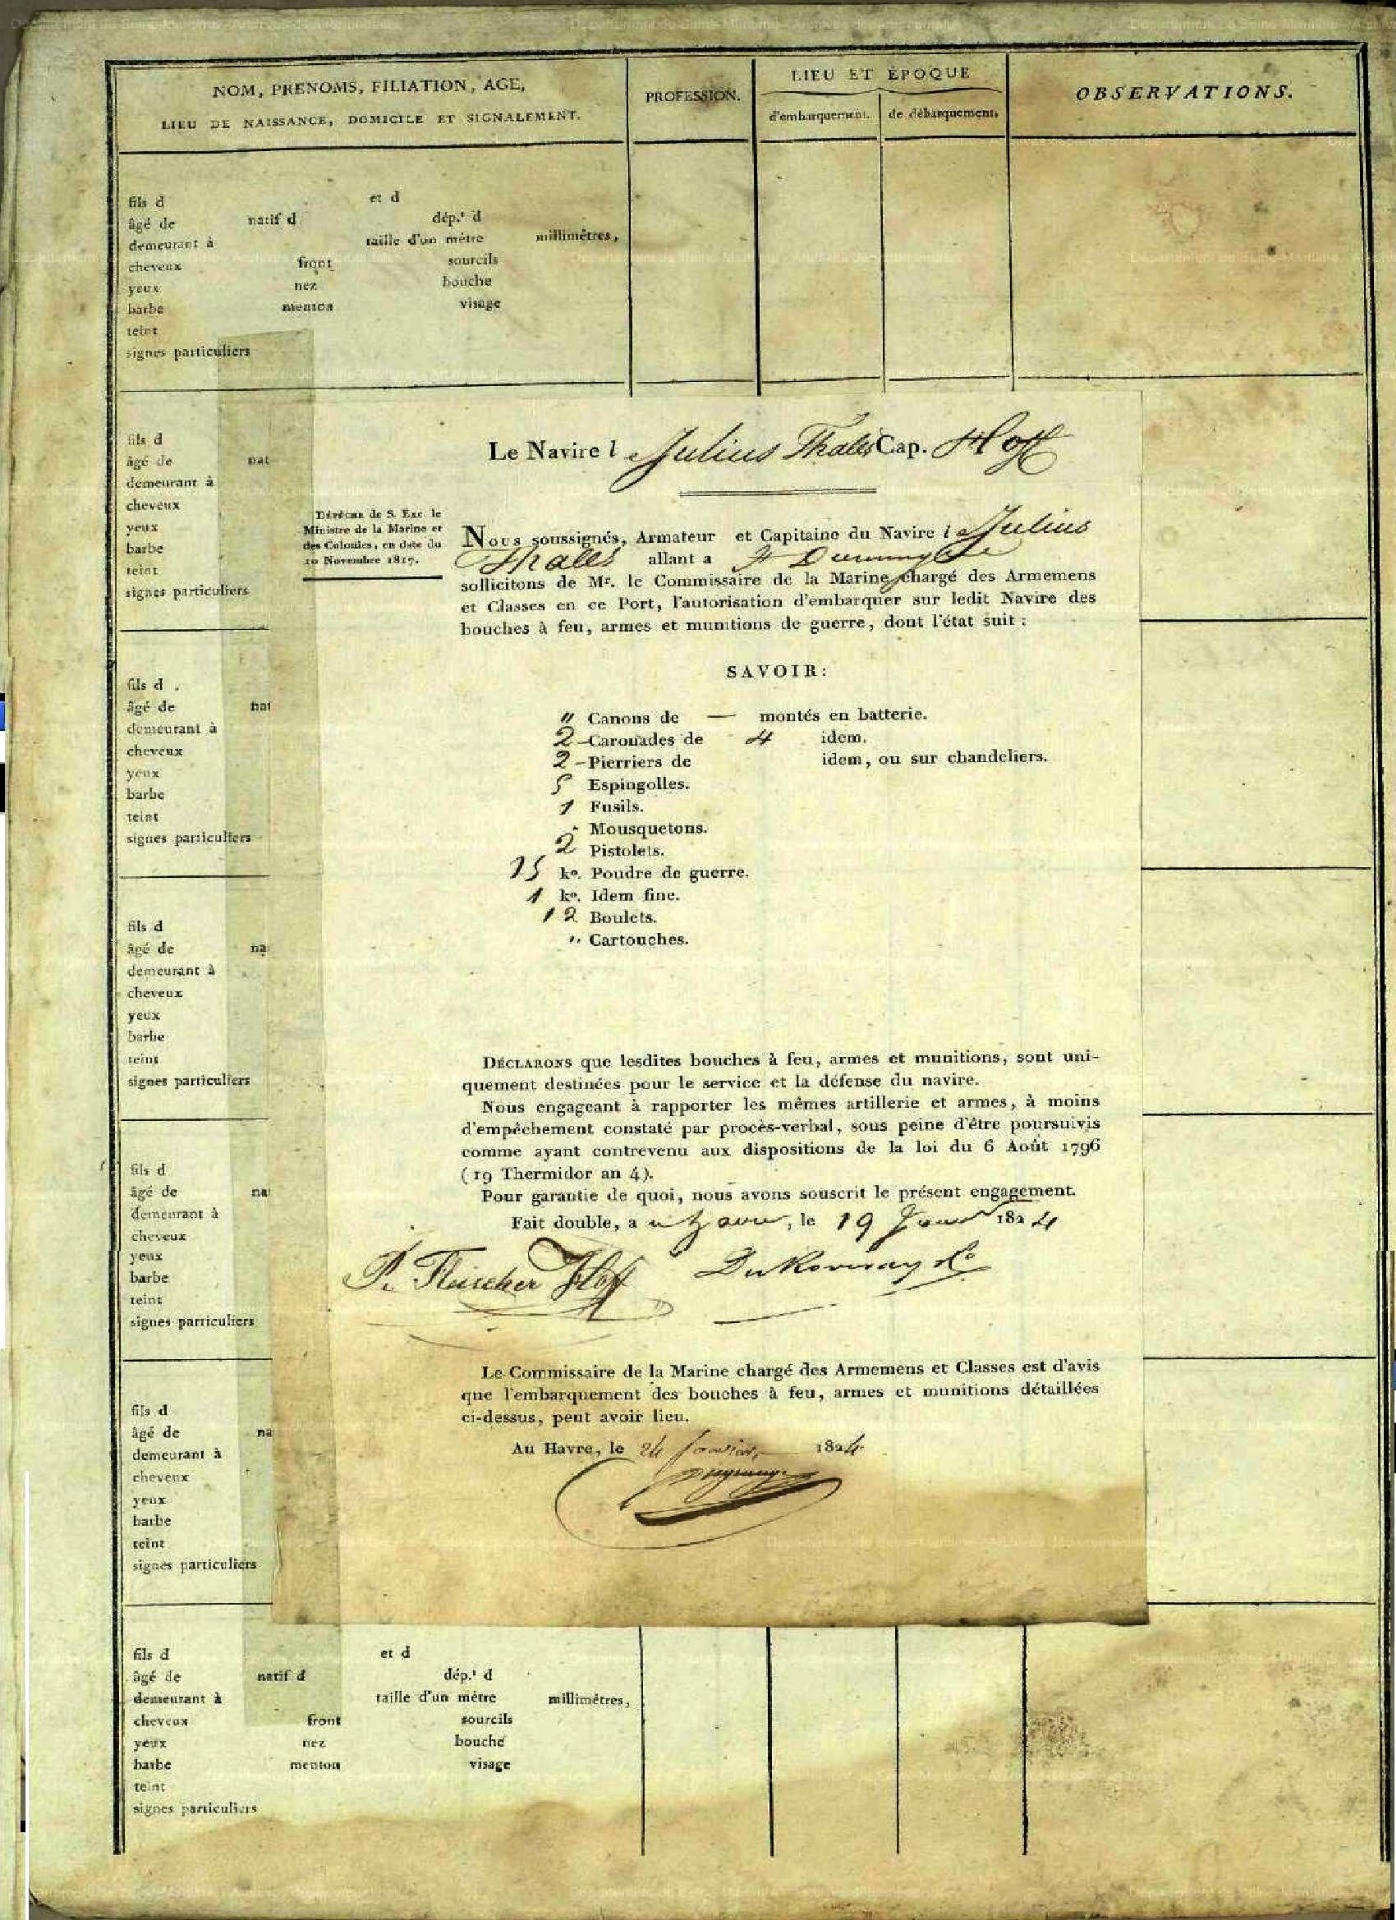 NOM, PRENOMS, FILIATION, AGE,
LIEU DE NAISSANCE, DOMICILE ET SIGNALEMENT.
PROFESSION.
LIEU ET ÉPOQUE
d'embarquement.
de débarquement.
OBSERVATIONS.
fils d et d
âgé de natif d dép.t d
demeurant à taille d'un mètre millimètres,
cheveux front sourcils
yeux nez bouche
barbe menton visage
teint
signes particuliers
fils d
âgé de nat
demeurant à
cheveux
yeux
barbe
teint
signes particuliers
fils d
âgé de nat
demeurant à
cheveux
yeux
barbe
teint
signes particuliers
fils d
âgé de na
demeurant à
cheveux
yeux
barbe
teint
signes particuliers
fils d
âgé de na
demeurant à
cheveux
yeux
barbe
teint
signes particuliers
fils d
âgé de na
demeurant à
cheveux
yeux
barbe
teint
signes particuliers
Le Navire le Julius Thales Cap. Hoff
Dépêche de S. Exc. le
Ministre de la Marine et
des Colonies, en date du
10 Novembre 1817.
Nous soussignés, Armateur et Capitaine du Navire le Julius
Thales allant a St
sollicitons de Mr. le Commissaire de la Marine chargé des Armemens
et Classes en ce Port, l'autorisation d'embarquer sur ledit Navire des
bouches à feu, armes et munitions de guerre, dont l'état suit :
SAVOIR:
" Canons de — montés en batterie.
2 Caronades de 4 idem.
2 Pierriers de idem, ou sur chandeliers.
5 Espingolles.
1 Fusils.
Mousquetons.
2 Pistolets.
15 ko. Poudre de guerre.
1 ko. Idem fine.
12 Boulets.
" Cartouches.
DÉCLARONS que lesdites bouches à feu, armes et munitions, sont uni-
quement destinées pour le service et la défense du navire.
Nous engageant à rapporter les mêmes artillerie et armes, à moins
d'empêchement constaté par procès-verbal, sous peine d'être poursuivis
comme ayant contrevenu aux dispositions de la loi du 6 Août 1796
(19 Thermidor an 4).
Pour garantie de quoi, nous avons souscrit le présent engagement.
Fait double, a u havre, le 19 Janvr 1824
P. Fleischer Hoff
Le Commissaire de la Marine chargé des Armemens et Classes est d'avis
que l'embarquement des bouches à feu, armes et munitions détaillées
ci-dessus, peut avoir lieu.
Au Havre, le 24 Janvier 1824
fils d et d
âgé de natif d dép.t d
demeurant à taille d'un mètre millimètres,
cheveux front sourcils
yeux nez bouche
barbe menton visage
teint
signes particuliers